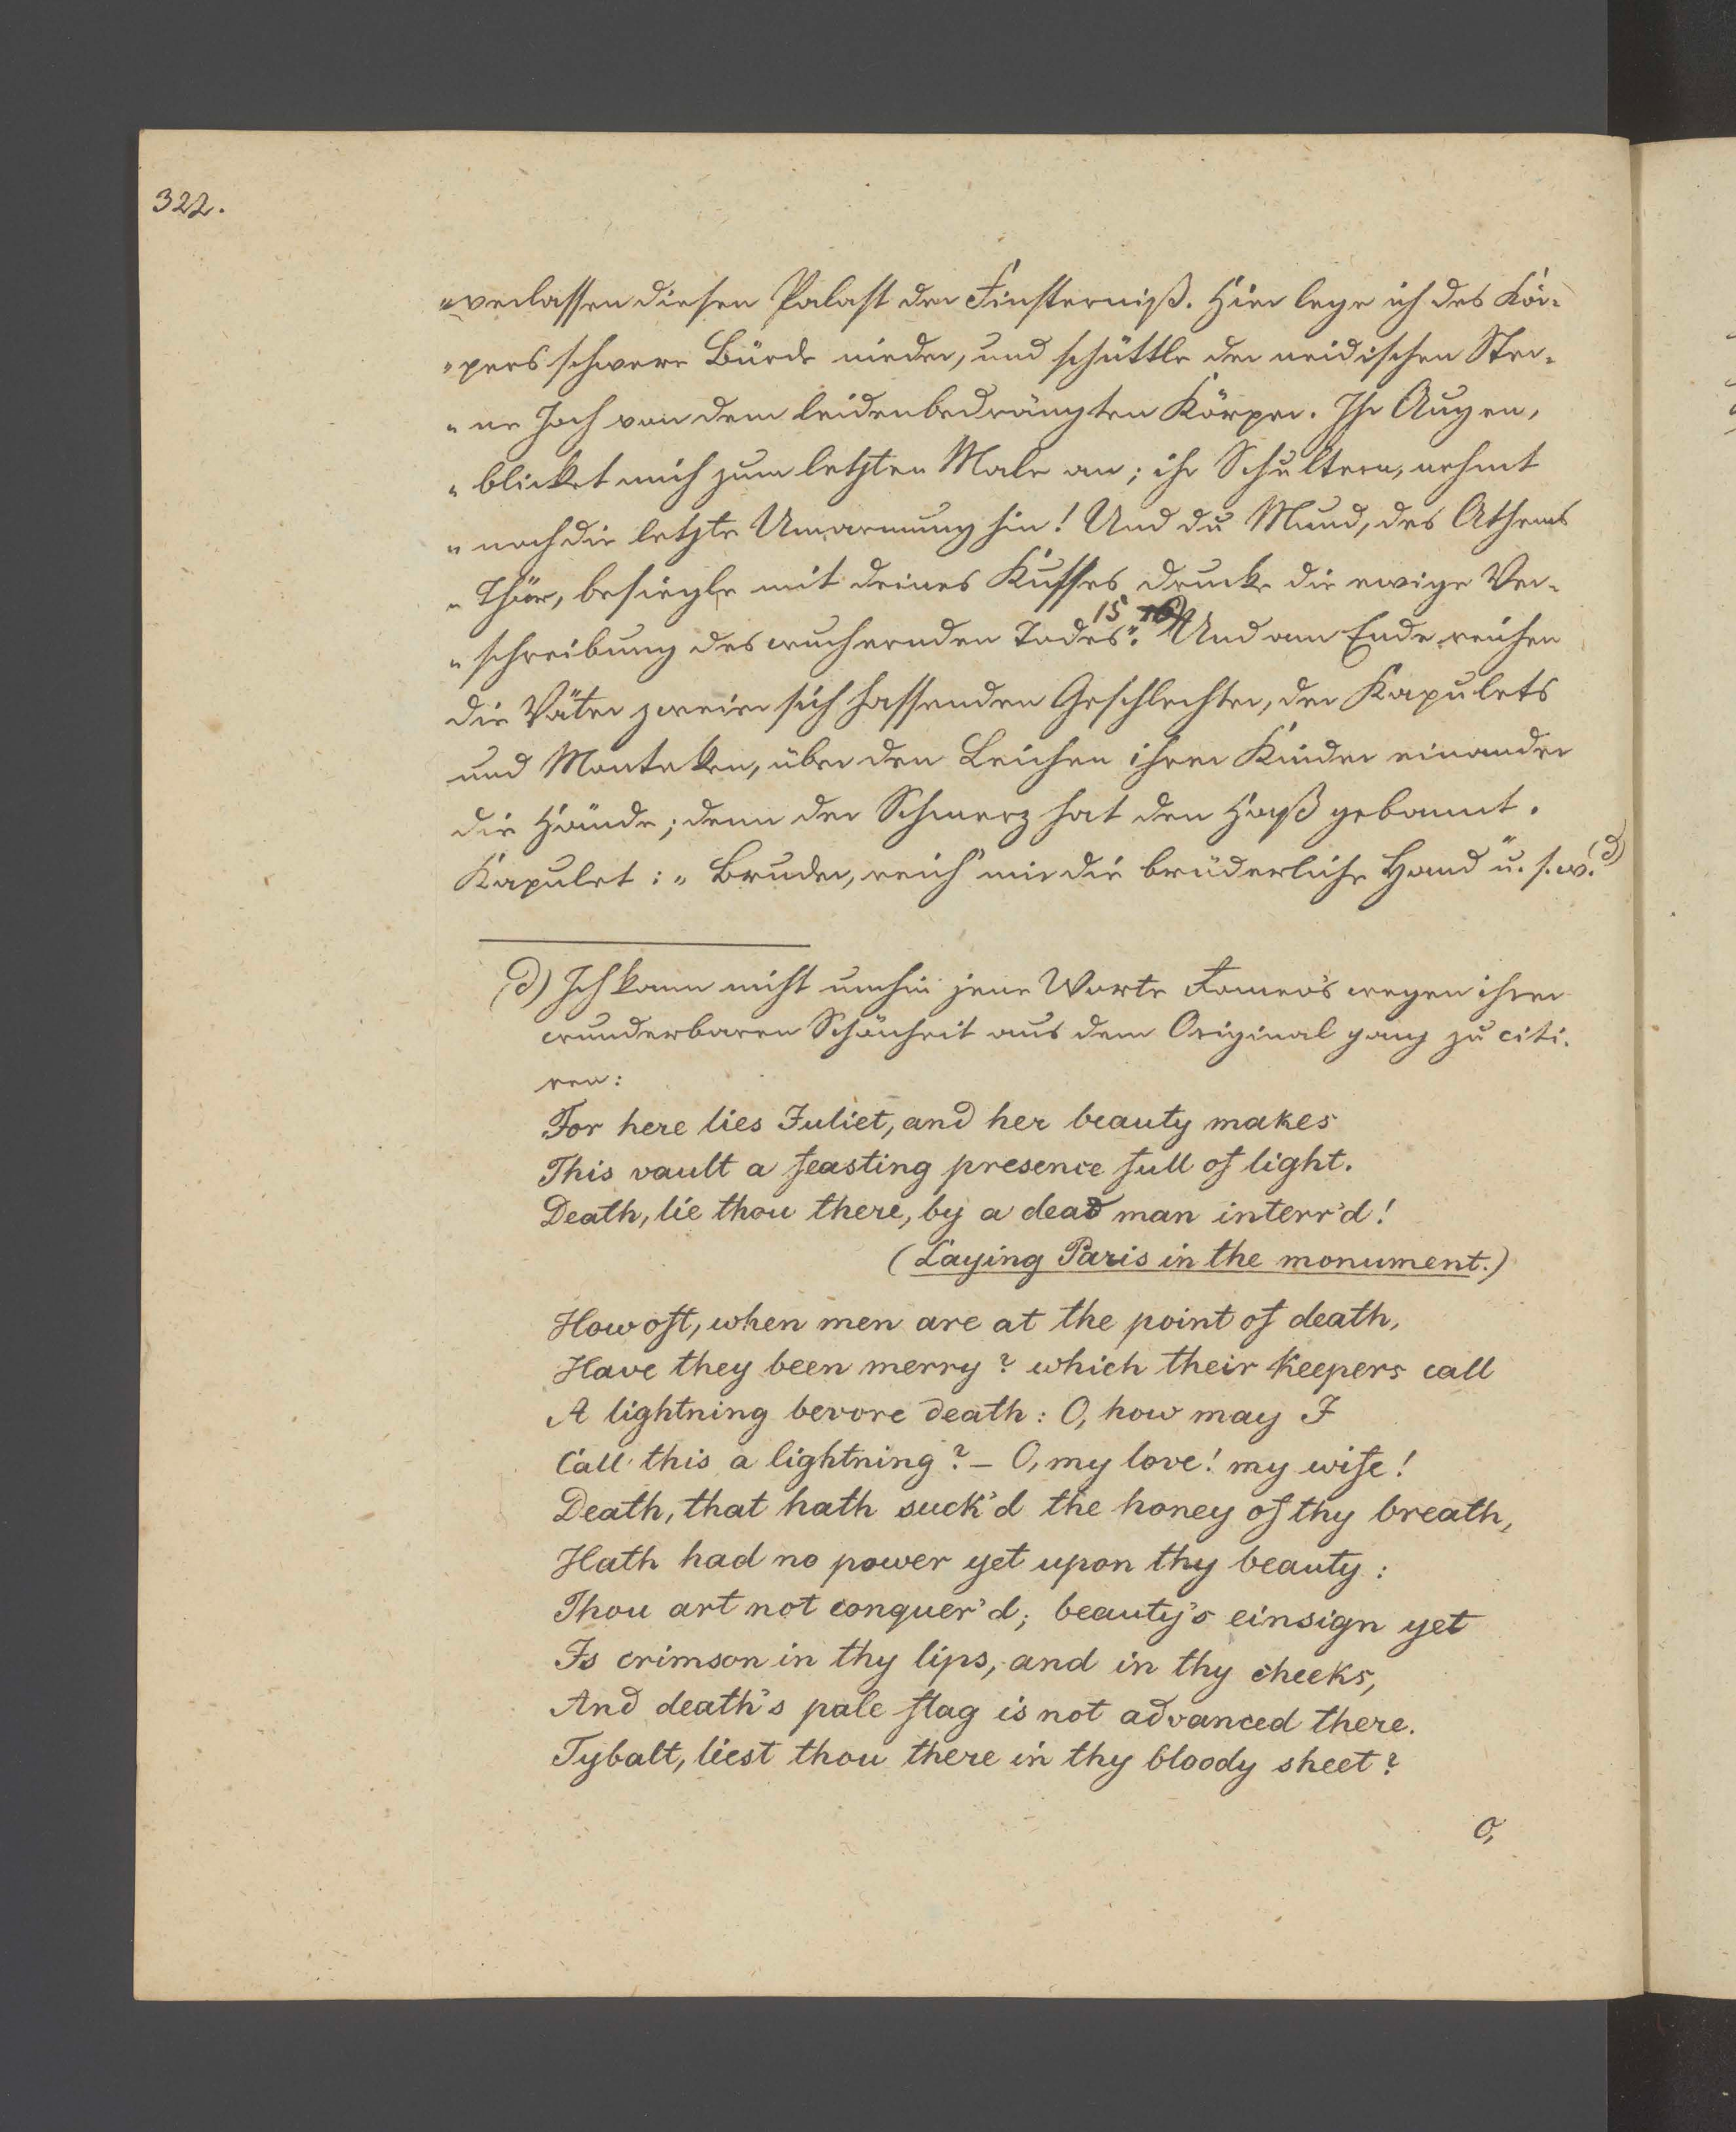 322.
"verlassen diesen Palast der Finsterniß. Hier lege ich des Kör-
"pers schwere Bürde nieder, und schüttle der neidischen Ster-
"ne Joch von dem leidenbedrängten Körper. Ihr Augen,
"blicket mich zum letzten Male an; ihr Schultern, nehmt
"noch die letzte Umarmung hin! Und du Mund, des Athems
"Thür, besiegle mit deines Kusses Drucke die ewige Ver-
"schreibung des wuchernden Todes". 15 Und am Ende reichen
die Väter zweier sich hassenden Geschlechter, der Kapulets
und Monteken, über den Leichen ihrer Kinder einander
die Hände; denn der Schmerz hat den Haß gebannt.
Kapulet: "Bruder, reich' mir die brüderliche Hand" u. s. w. (d)
(d) Ich kann nicht umhin jene Worte Romeo's wegen ihrer
wunderbaren Schönheit aus dem Original ganz zu citi-
ren:
For here lies Juliet, and her beauty makes
This vault a feasting presence full of light.
Death, lie thou there, by a dead man interr'd!
(Laying Paris in the monument.)
How oft, when men are at the point of death,
Have they been merry? which their keepers call
A lightning bevore death: O, how may I
Call this a lightning? – O, my love! my wife!
Death, that hath suck'd the honey of thy breath,
Hath had no power yet upon thy beauty:
Thou art not conquer'd; beauty's einsign yet
Is crimson in thy lips, and in thy cheeks,
And death's pale flag is not advanced there.
Tybalt, liest thou there in thy bloody sheet?
O,